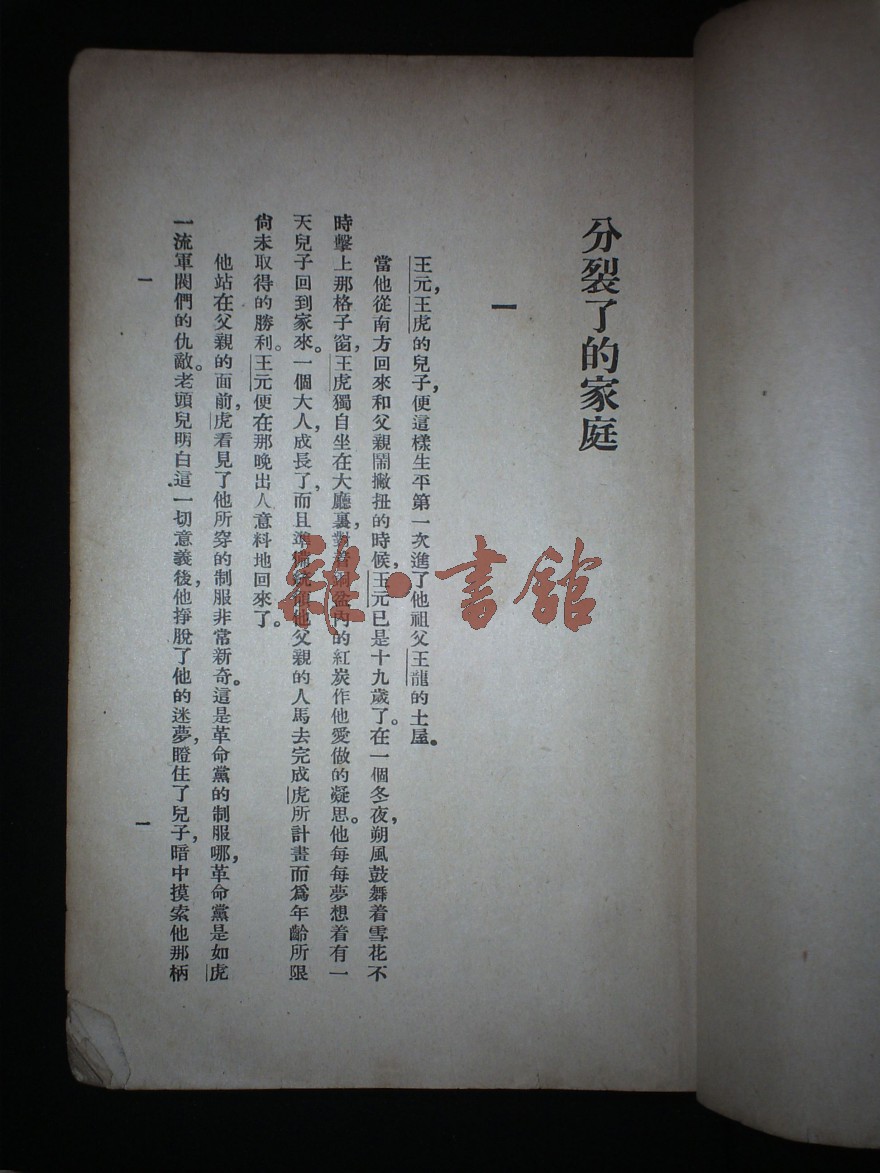 分裂了的家庭
一
王元，王虎的兒子，便這樣生平第一次進了他祖父王龍的土屋。
當他從南方回來和父親鬧撇扭的時候，王元已是十九歲了。在一個冬夜，朔風鼓舞着雪花不
時擊上那格子窗，王虎獨自坐在大廳裏，對着銅盆內的紅炭作他愛做的凝思。他每每夢想着有一
天兒子回到家來。一個大人，成長了，而且準備統領他父親的人馬去完成虎所計畫而爲年齡所限
尙未取得的勝利。王元便在那晚出人意料地回來了。
他站在父親的面前，虎看見了他所穿的制服非常新奇。這是革命黨的制服哪，革命黨是如虎
一流軍閥們的仇敵。老頭兒明白這一切意義後，他掙脫了他的迷夢，瞪住了兒子，暗中摸索他那柄
一
一
雜·書館